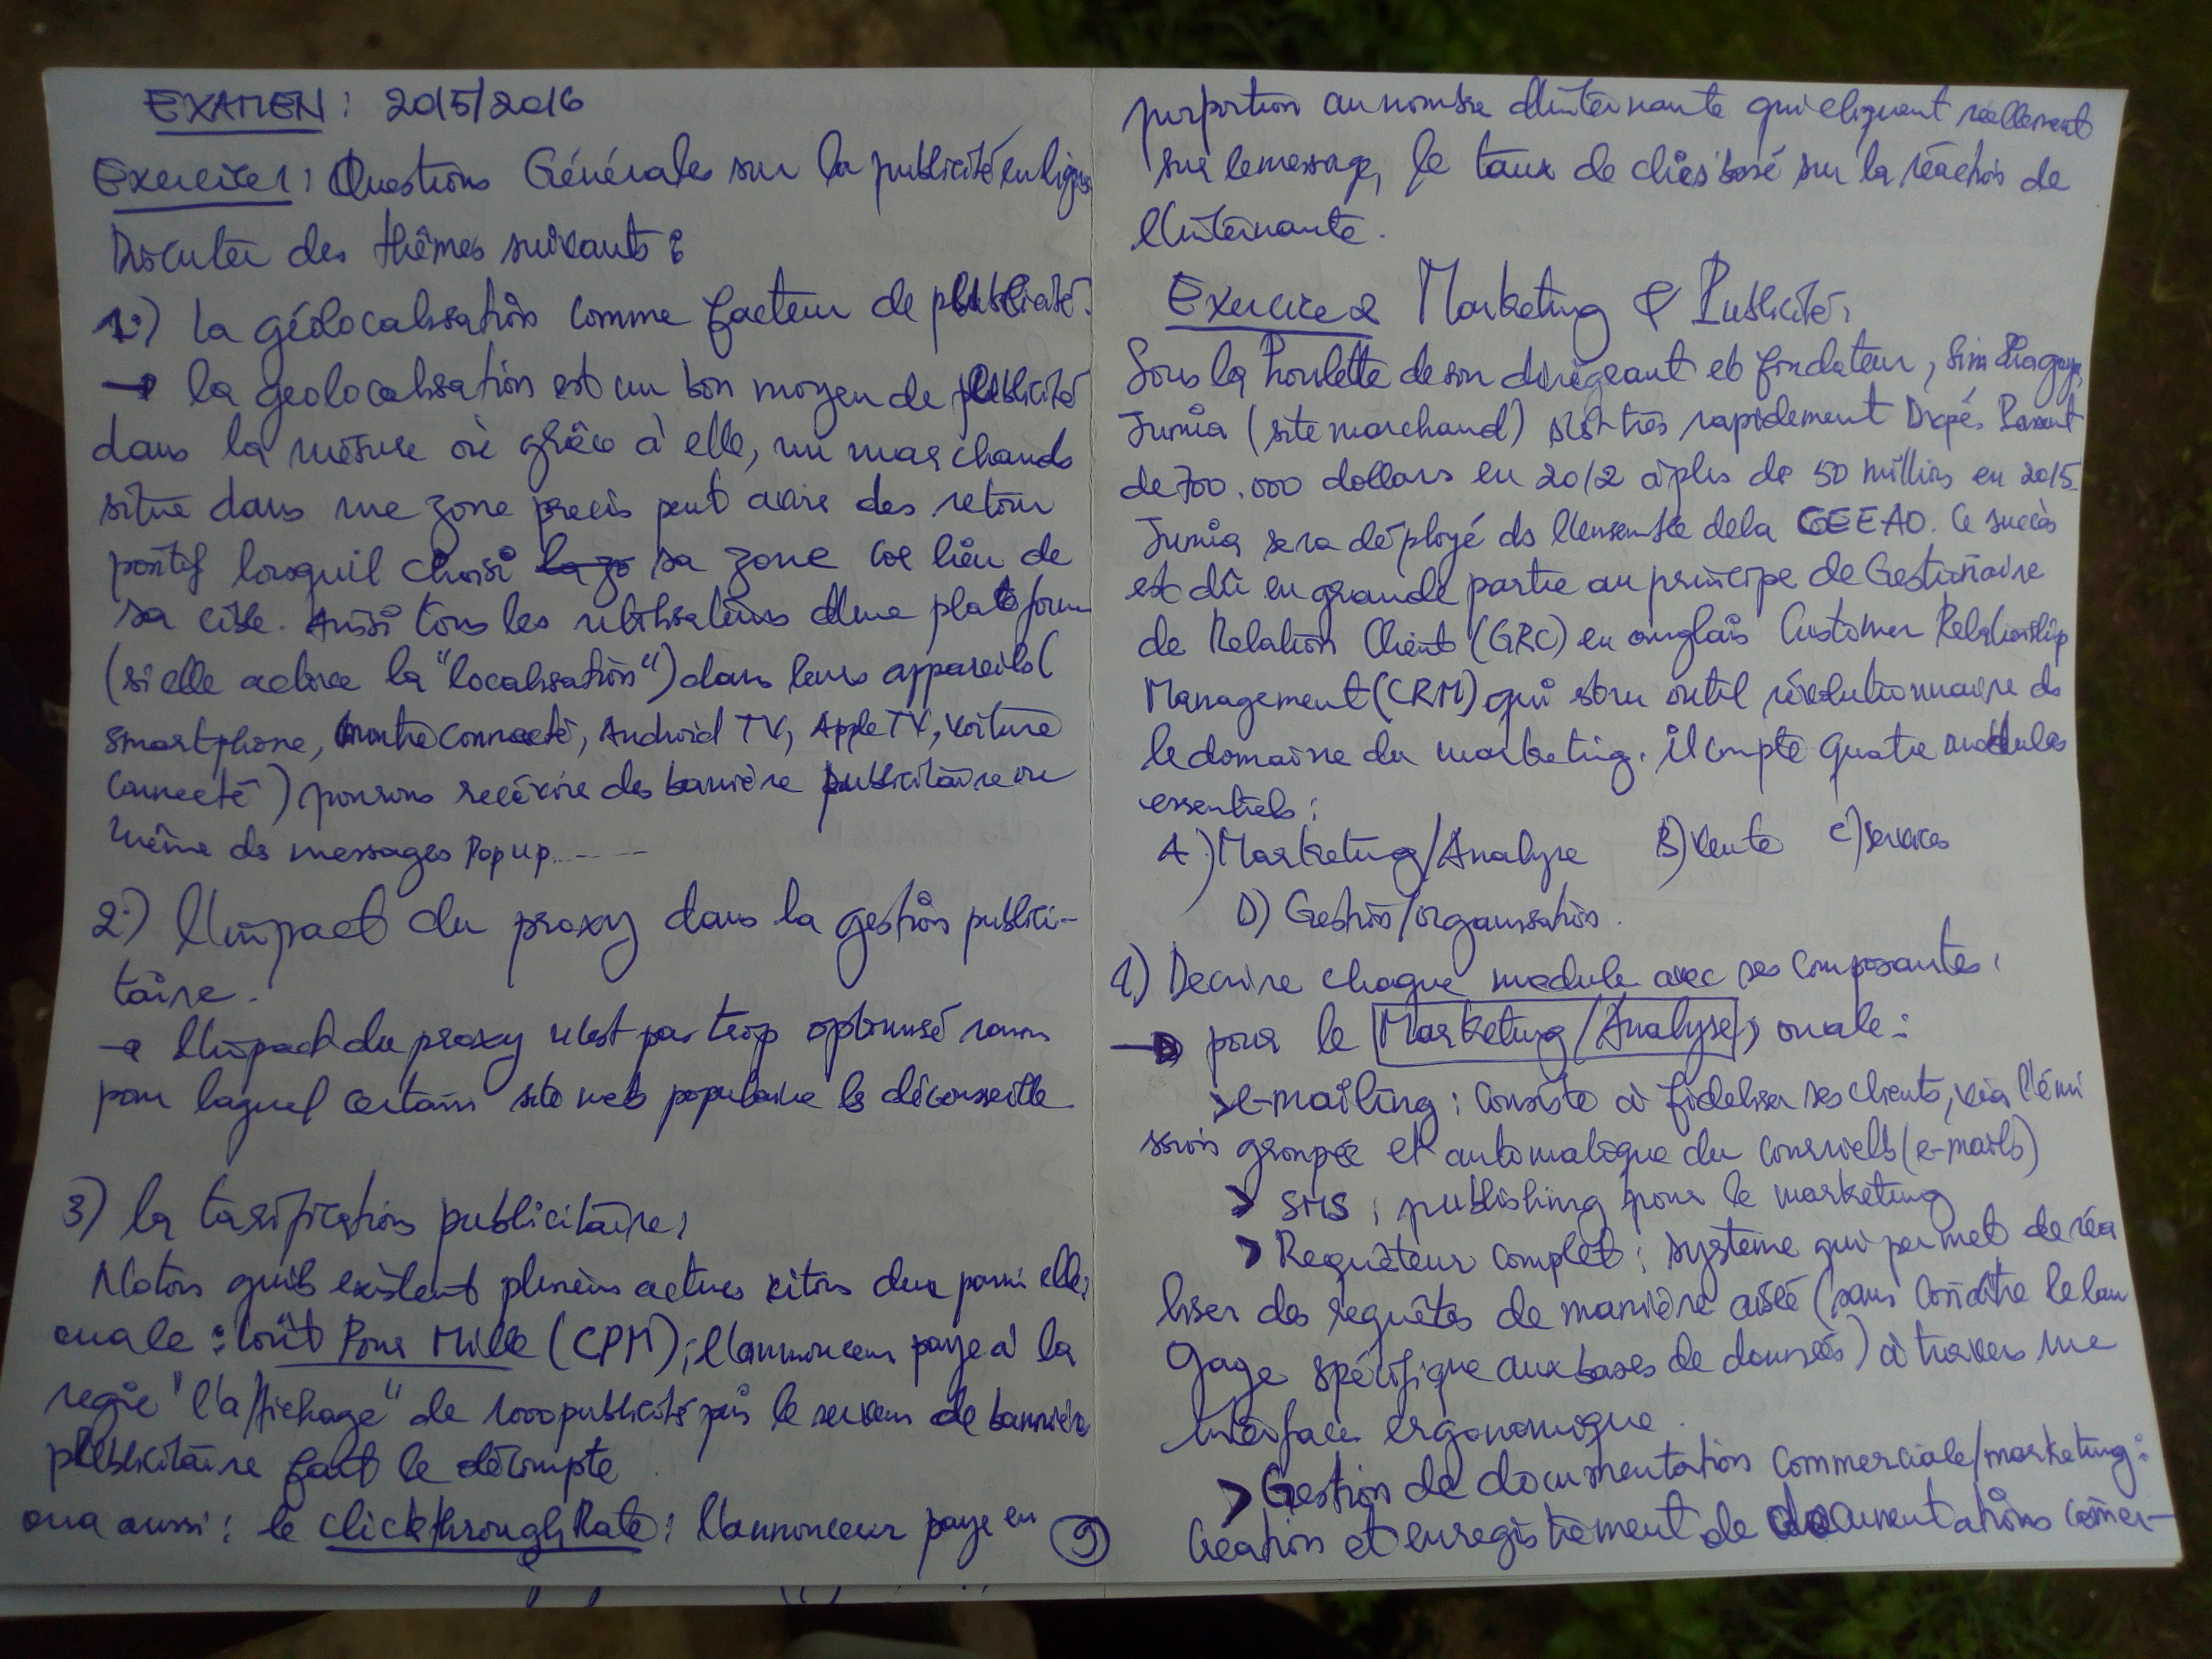 EXAMEN : 2015/2016
Exercice 1 : Questions Générales sur la publicité en ligne
Discuter des thèmes suivants :
1.) la géolocalisation comme facteur de publicité.
→ la géolocalisation est un bon moyen de publicité
dans la mesure où grâce à elle, un marchands
situe dans une zone precis peut avoir des retour
positif lorsqu'il choisi la zo sa zone cõe lieu de
sa cible. Aussi tous les utilisateurs d'une plateforme
(si elle active la "localisation") dans leurs appareils (
smartphone, montre connecté, Android TV, Apple TV, voiture
connecté) recevoir des bannière publicitaire ou
même ds messages Pop up.....
2.) l'impact du proxy dans la gestion publici-
taire.
→ l'impact du proxy n'est pas trop optimisé raison
pour laquel certains site web populaire le déconseille
3) la tarification publicitaire :
Notons qu'ils existent plusieurs citons deux parmi elle,
on a le : Coût Pour Mille (CPM) ; l'annonceur paye à la
regie "l'affichage" de 1000 publicités puis le serveur de bannière
publicitaire fait le décompte
on a aussi : le clickthrough Rate : l'annonceur paye en
9
proportion au nombre d'internaute qui cliquent réellement
sur le message, le taux de clics basé sur la réaction de
l'internaute.
Exercice 2 Marketing & Publicité.
Sous la houlette de son dirigeant et fondateur, Sim Shagaya,
Jumia (site marchand) s'est très rapidement Dvpé. Passant
de 700.000 dollars en 2012 à plus de 50 millions en 2015.
Jumia sera déployé ds l'ensemble de la CEEAO. Ce succès
est dû en grande partie au principe de Gestionnaire
de Relation Client (GRC) en anglais Customer Relationship
Management (CRM) qui est un outil révolutionnaire ds
le domaine du marketing. il compte quatre modules
essentiels :
A) Marketing/Analyse B) Vente C) Services
D) Gestion/organisation.
1) Decrire chaque module avec ses composantes.
→ pour le Marketing/Analyse, on a le :
> e-mailing : Consiste à fideliser ses clients, via l'émi
ssion groupée et automatique du courriels (e-mails)
> SMS : publishing pour le marketing
> Requêteur complet : système qui permet de réa
liser des requêtes de manière aisée (sans connaître le lan
gage spécifique aux bases de données) à travers une
interface ergonomique.
> Gestion de documentation commerciale/marketing :
Création et enregistrement de documentations comer-